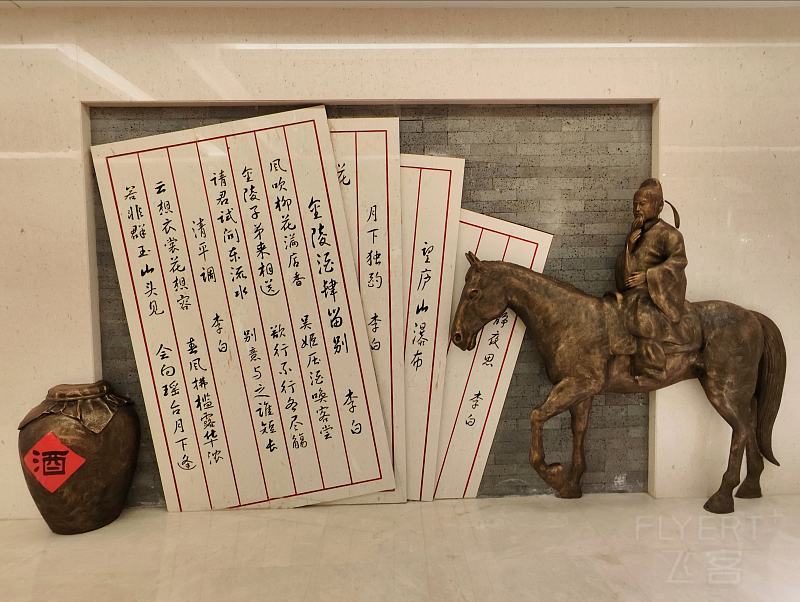 金陵酒肆留别 李白
风吹柳花满店香 吴姬压酒唤客尝
金陵子弟来相送 欲行不行各尽觞
请君试问东流水 别意与之谁短长
清平调 李白
云想衣裳花想容 春风拂槛露华浓
若非群玉山头见 会向瑶台月下逢
月下独酌 李白
花
望庐山瀑布
静夜思 李白
酒
FLYERT
飞客